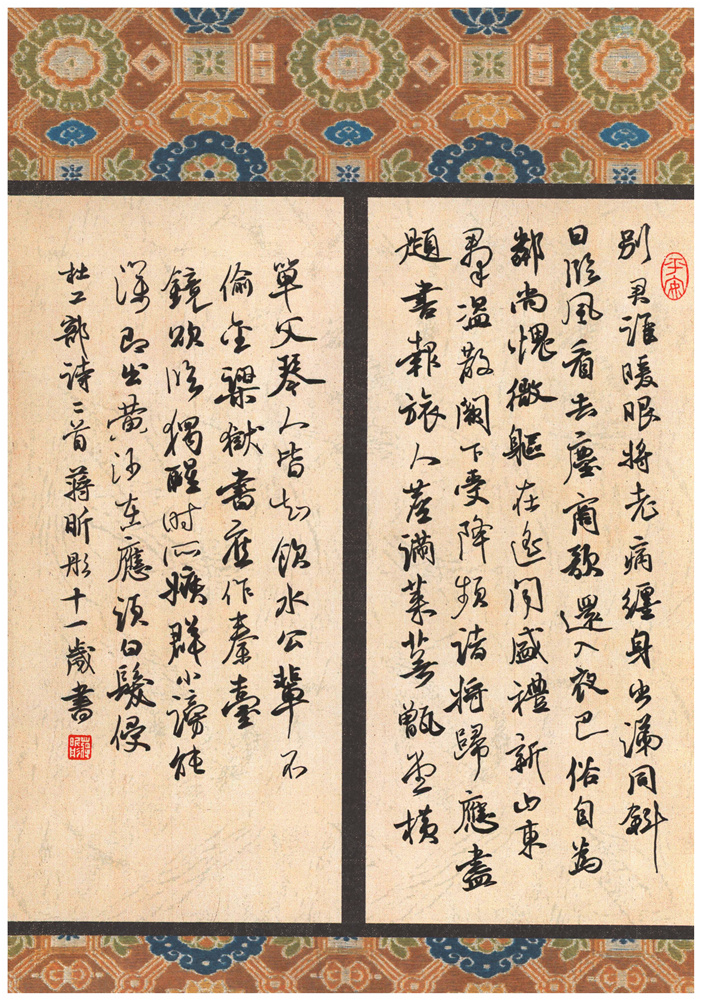 平安
別君誰暖眼將老病纏身出涕同斜
日臨風看去塵商歌還入夜巴俗自為
鄰尚愧微軀在遙聞盛禮新山東
群盜散闕下受降頻諸將歸應盡
題書報旅人塵滿萊蕪甑堂橫
單父琴人皆知飲水公輩不
偷金梁獄書應作秦臺
鏡欲臨獨醒時所嫉群小謗能
深即出黃沙在應須白髮侵
杜工部詩二首蔣昕彤十一歲書